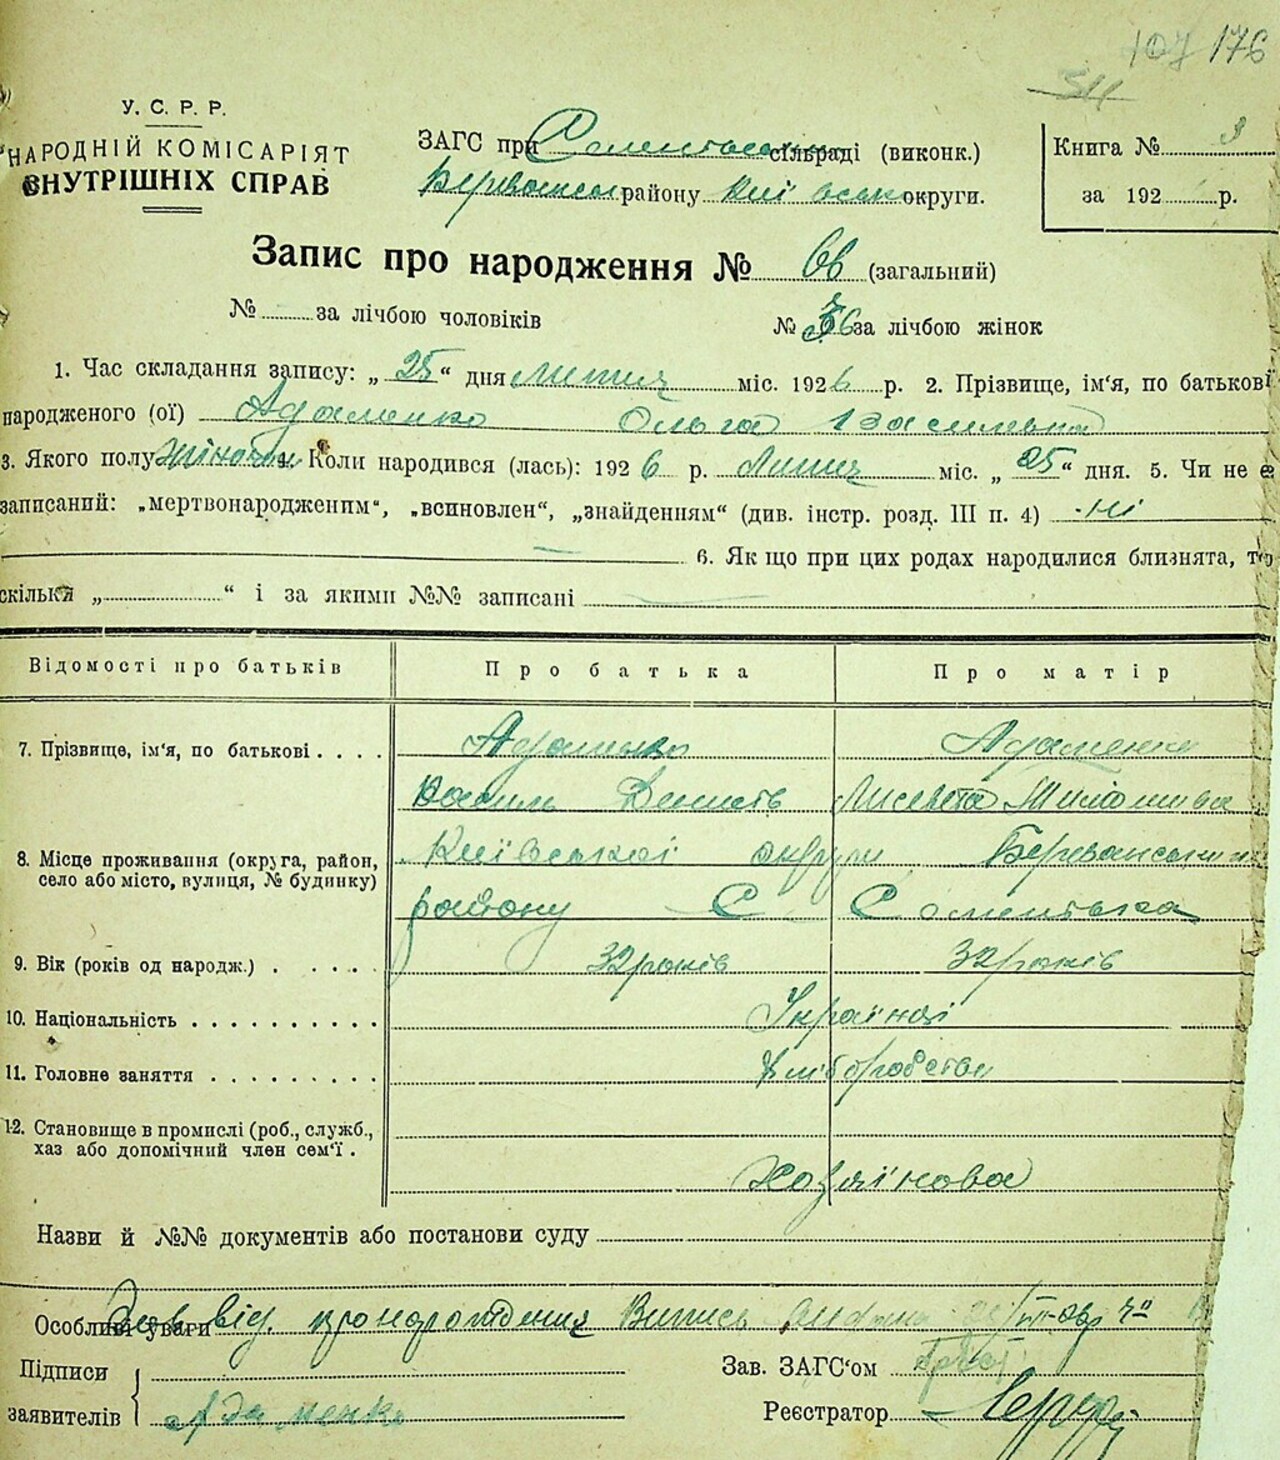 107 176
511
У. С. Р. Р.
НАРОДНІЙ КОМІСАРІЯТ
ВНУТРІШНІХ СПРАВ
ЗАГС при сільраді (виконк.)
району Київськ округи.
Книга № 3
за 192 р.
Запис про народження № 66 (загальний)
№ за лічбою чоловіків
№ 36 за лічбою жінок
1. Час складання запису: „ 25 “ дня Липня міс. 1926 р. 2. Прізвище, ім'я, по батькові
народженого (ої) Адаменко Ольга Васильевна
3. Якого полу жіночоы 4. Коли народився (лась): 1926 р. Липня міс. „ 25 “ дня. 5. Чи не є
записаний: „мертвонародженим“, „всиновлен“, „знайденням“ (див. інстр. розд. III п. 4) ні
6. Як що при цих родах народилися близнята, то
скільки „ “ і за якими №№ записані
Відомості про батьків Про батька Про матір
7. Прізвище, ім'я, по батькові . . . . Адаменко Адаменко
Василь Лисевета
8. Місце проживання (округа, район, Київської округи
село або місто, вулиця, № будинку) району С
9. Вік (років од народж.) . . . . . 32 років 32 років
10. Національність . . . . . . . . . . Українці
11. Головне заняття . . . . . . . . . Хліборобство
12. Становище в промислі (роб., служб.,
хаз або допомічний член сем'ї .
Хазяїнова
Назви й №№ документів або постанови суду
Особливі уваги від. про народження Випись
Підписи
заявителів Адаменко
Зав. ЗАГС'ом
Реєстратор